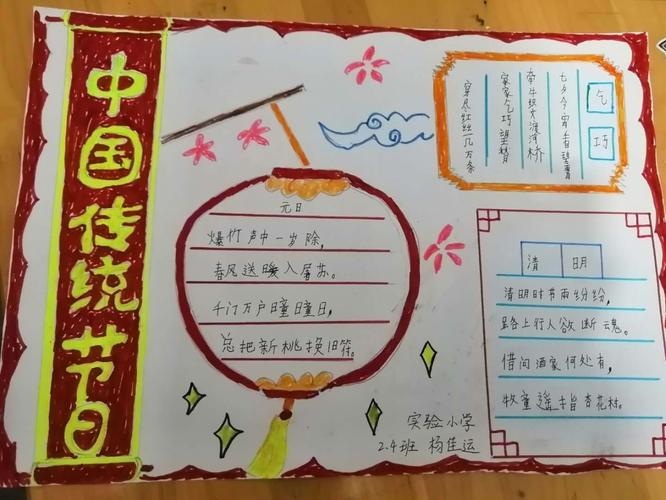 中国传统节日
元日
爆竹声中一岁除,
春风送暖入屠苏。
千门万户曈曈日,
总把新桃换旧符。
乞巧
七夕今宵看碧霄
牵牛织女渡河桥
家家乞巧望
穿尽红丝几万条
清明
清明时节雨纷纷,
路上行人欲断魂。
借问酒家何处有,
牧童遥指杏花村。
实验小学
2.4班 杨佳运